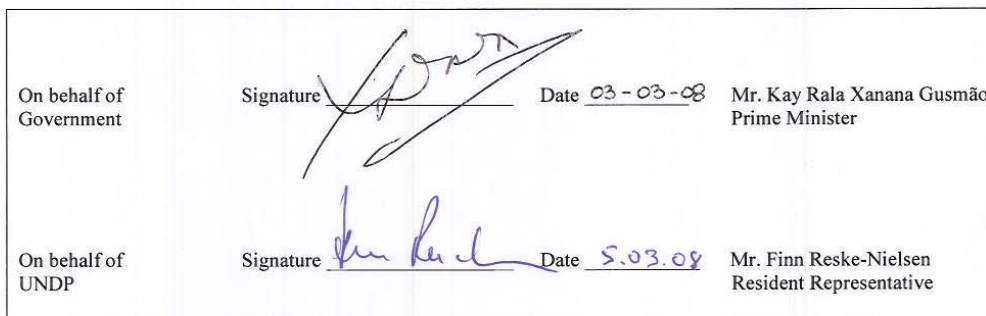 On behalf of Government Signature Date 03-03-08 Mr. Kay Rala Xanana Gusmão
Prime Minister
On behalf of UNDP Signature Date 5.03.08 Mr. Finn Reske-Nielsen
Resident Representative